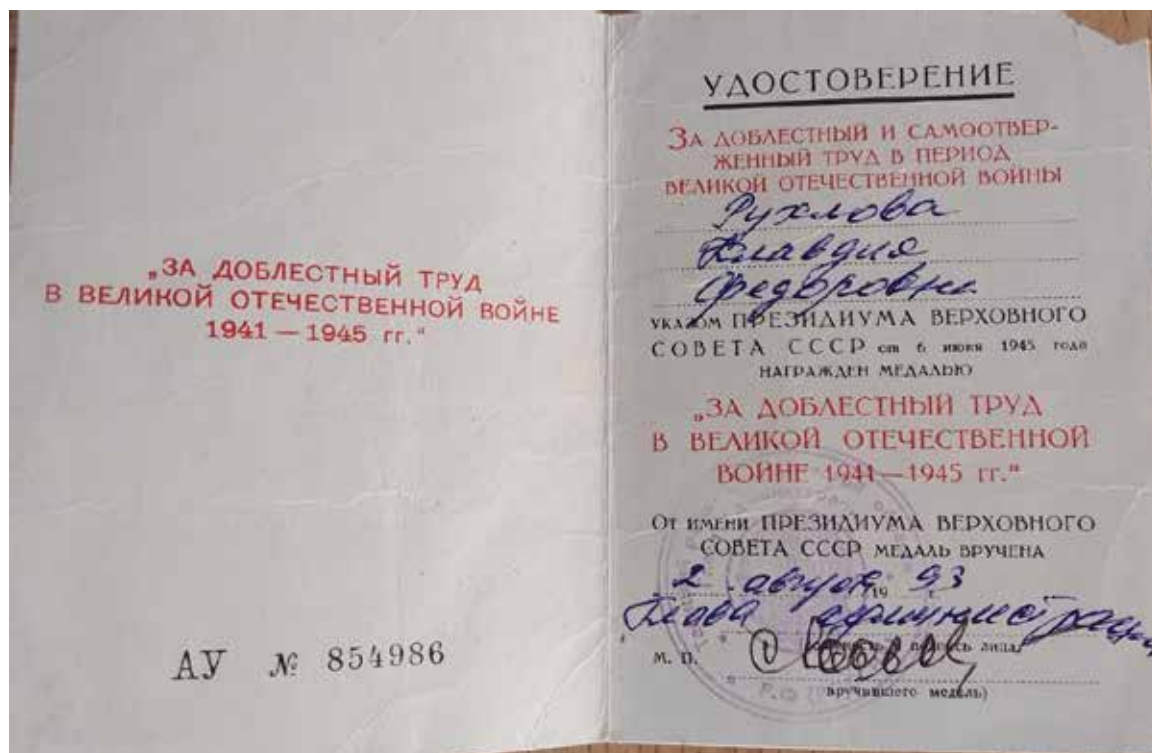 „ЗА ДОБЛЕСТНЫЙ ТРУД
В ВЕЛИКОЙ ОТЕЧЕСТВЕННОЙ ВОЙНЕ
1941 — 1945 гг.“
АУ № 854986
УДОСТОВЕРЕНИЕ
ЗА ДОБЛЕСТНЫЙ И САМООТВЕР-
ЖЕННЫЙ ТРУД В ПЕРИОД
ВЕЛИКОЙ ОТЕЧЕСТВЕННОЙ ВОЙНЫ
Рухлова
Клавдия
Федоровна
УКАЗОМ ПРЕЗИДИУМА ВЕРХОВНОГО
СОВЕТА СССР от 6 июня 1945 года
НАГРАЖДЕН МЕДАЛЬЮ
„ЗА ДОБЛЕСТНЫЙ ТРУД
В ВЕЛИКОЙ ОТЕЧЕСТВЕННОЙ
ВОЙНЕ 1941—1945 гг.“
ОТ ИМЕНИ ПРЕЗИДИУМА ВЕРХОВНОГО
СОВЕТА СССР МЕДАЛЬ ВРУЧЕНА
2 августа 19 93 г.
Глава администрации
М. П. подпись лица,
вручившего медаль)